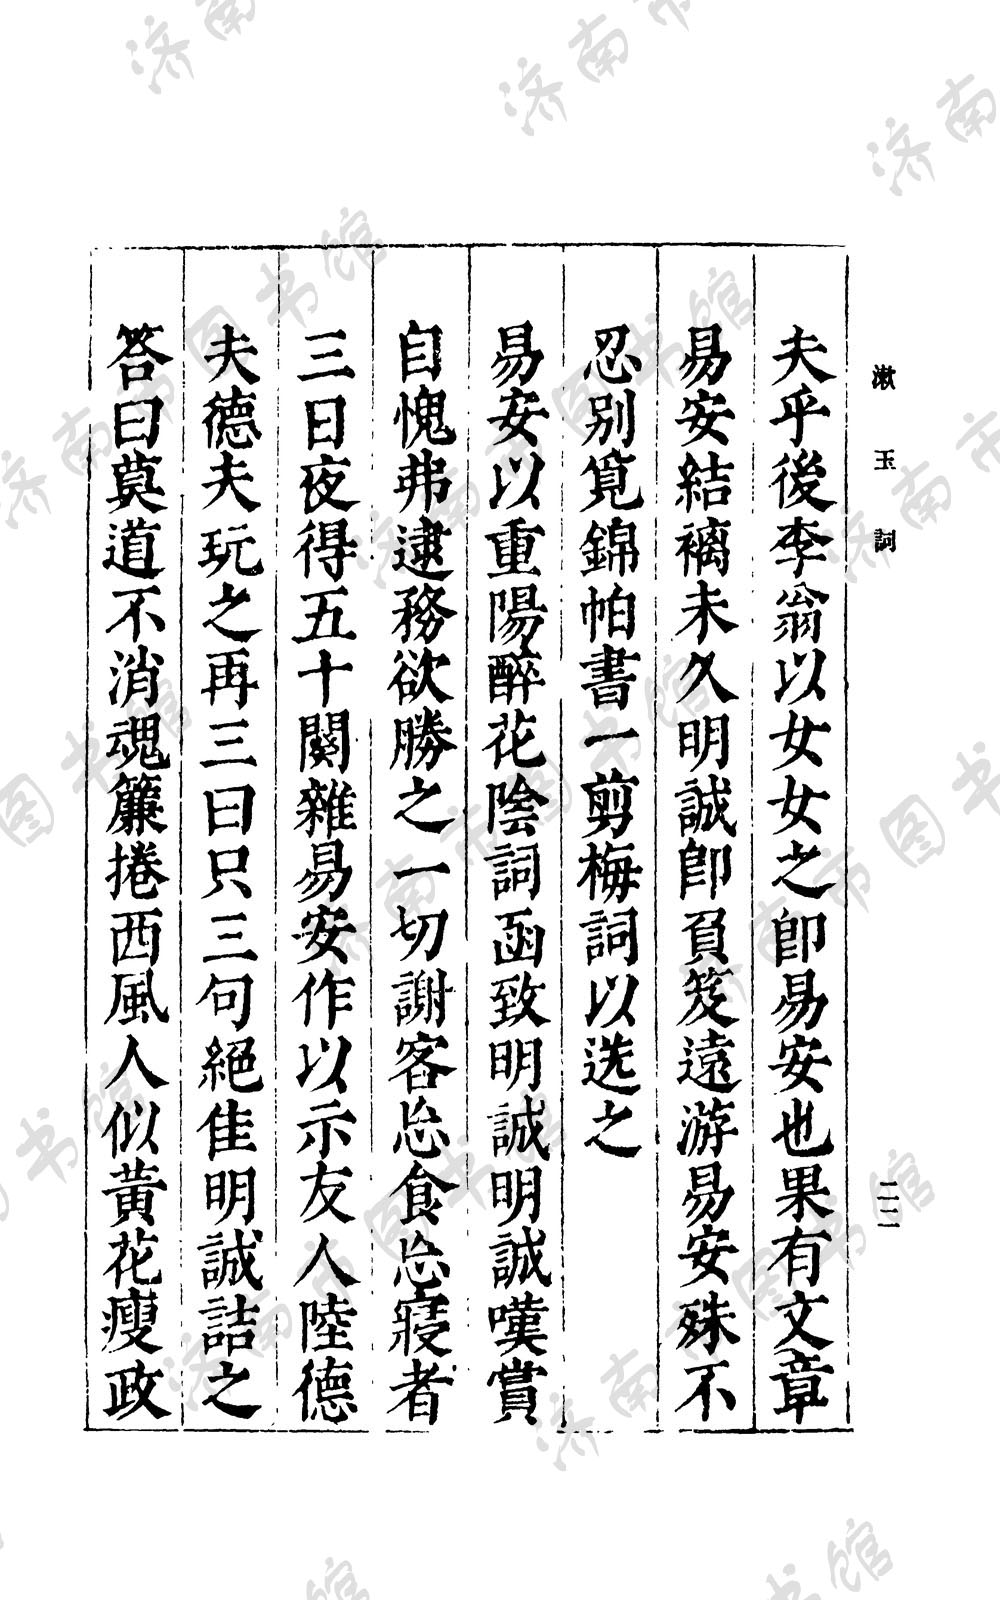 漱玉詞
二二
夫乎後李翁以女女之即易安也果有文章
易安結褵未久明誠即負笈遠游易安殊不
忍別覓錦帕書一剪梅詞以送之
易安以重陽醉花陰詞函致明誠明誠嘆賞
自愧弗逮務欲勝之一切謝客忘食忘寢者
三日夜得五十闋雜易安作以示友人陸德
夫德夫玩之再三曰只三句絕佳明誠詰之
答曰莫道不消魂簾捲西風人似黃花瘦政
济南市图书馆